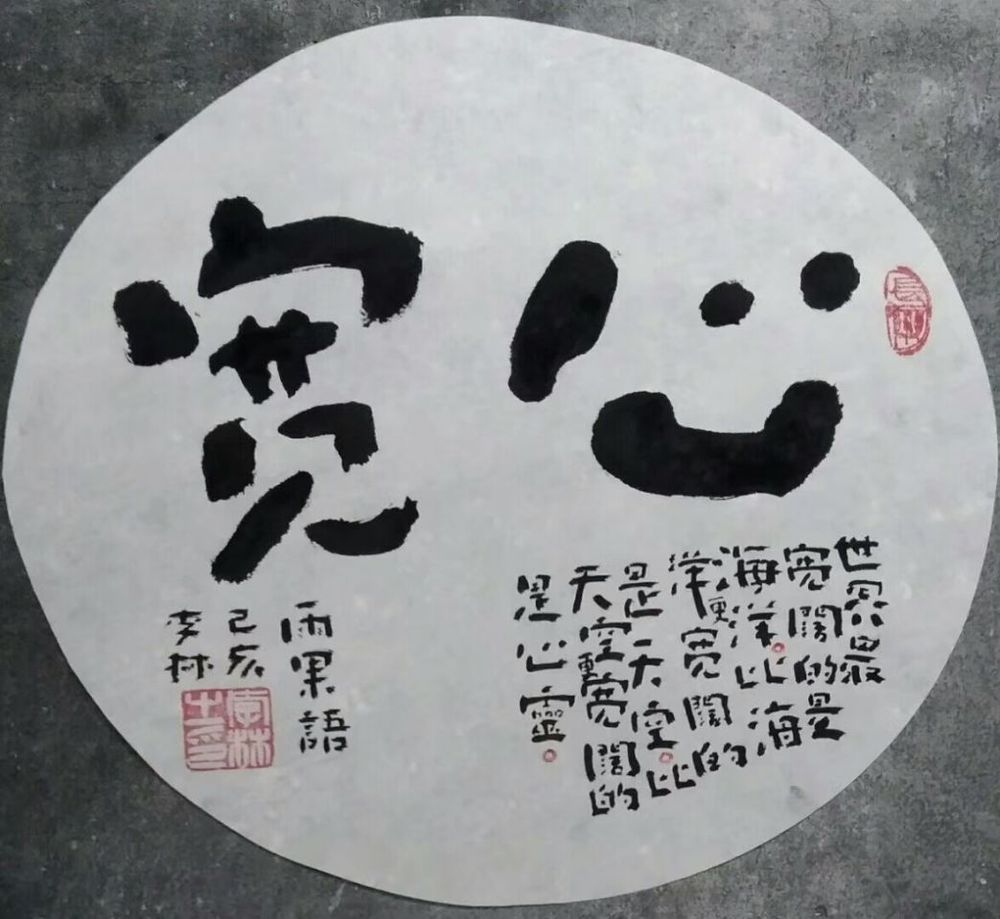 心宽
世界最
宽闊的是
海洋。比海
洋更宽闊的
是天空。比
天空更宽闊的
是心靈。
雨果語
己亥
李林
李林之印